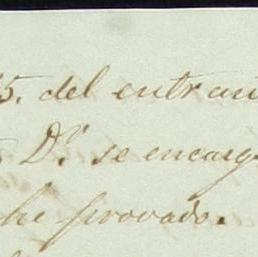 5. del entran
D.ⁿ se encarg
he provado.